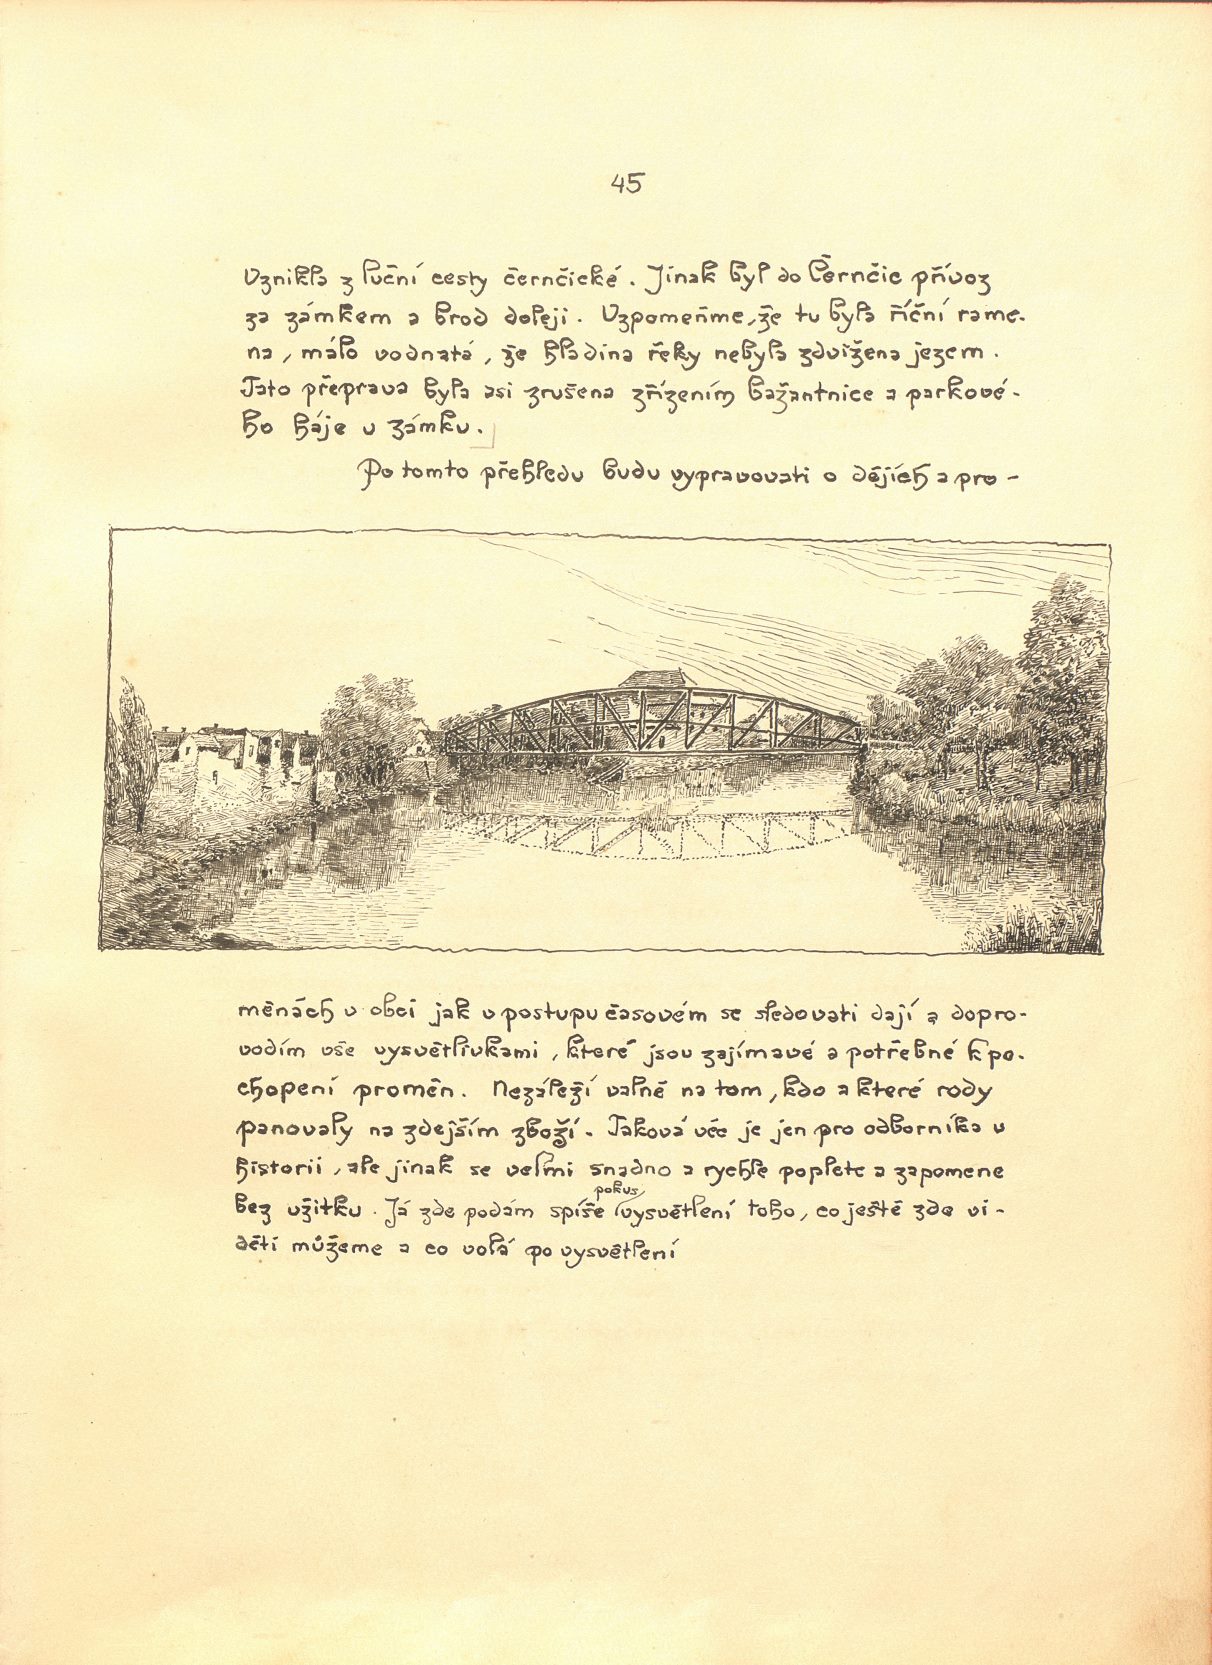 45
Vznikla z luční cesty černčické. Jinak byl do Černčic přívoz
za zámkem a brod doleji. Vzpomeňme, že tu byla říční rame-
na, málo vodnatá, že hladina řeky nebyla zdvižena jezem.
Tato přeprava byla asi zrušena zřízením bažantnice a parkové-
ho háje u zámku.
Po tomto přehledu budu vypravovati o dějích a pro-
měnách v obci jak v postupu časovém se sledovati dají a dopro-
vodím vše vysvětlivkami, které jsou zajímavé a potřebné k po-
chopení proměn. Nezáleží valně na tom, kdo a které rody
panovaly na zdejším zboží. Taková věc je jen pro odborníka v
historii, ale jinak se velmi snadno a rychle poplete a zapomene
pokus
bez užitku. Já zde podám spíše vysvětlení toho, co ještě zde vi-
děti můžeme a co volá po vysvětlení